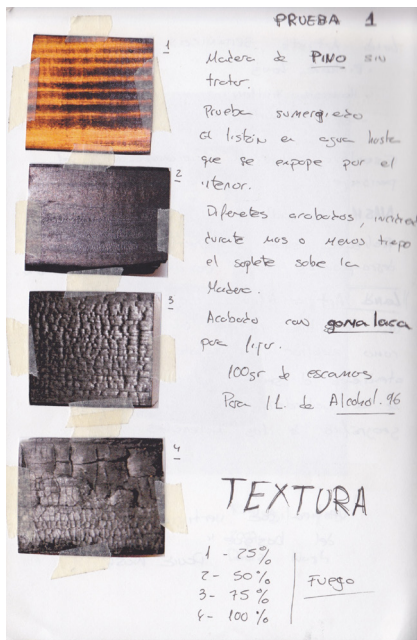 PRUEBA 1
1
Madera de PINO sin
tratar.
Prueba sumergiedo
el listón en agua hasta
que se enpope por el
iterior.
2
Difenetes acabados, incidiedo
durate mas o menos tiempo
el soplete sobe la
Madera.
3
Acabado con goma laca
para fijar.
100gr de escamas
Para 1L. de Alcohol.96
4
TEXTURA
1 - 25%
2 - 50%
3 - 75%
4 - 100%
Fuego